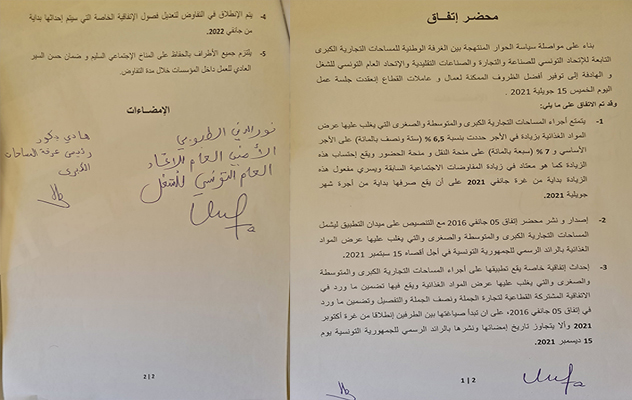 محضر إتفــاق
بناء على مواصلة سياسة الحوار المنتهجة بين الغرفة الوطنية للمساحات التجارية الكبرى
التابعة للإتحاد التونسي للصناعة والتجارة والصناعات التقليدية والإتحاد العام التونسي للشغل
و الهادفة إلى توفير أفضل الظروف الممكنة لعمال و عاملات القطاع إنعقدت جلسة عمل
اليوم الخميس 15 جويلية 2021 .
وقد تم الاتفاق على ما يلي:
1- يتمتع أجراء المساحات التجارية الكبرى والمتوسطة والصغرى التي يغلب عليها عرض
المواد الغذائية بزيادة في الأجر حددت بنسبة 6,5 % (ستة ونصف بالمائة) على الأجر
الأساسي و 7 % (سبعة بالمائة) على منحة النقل و منحة الحضور ويقع إحتساب هذه
الزيادة كما هو معتاد في زيادة المفاوضات الاجتماعية السابقة ويسري مفعول هذه
الزيادة بداية من غرة جانفي 2021 على أن يقع صرفها بداية من أجرة شهر
جويلية 2021.
2- إصدار و نشر محضر إتفاق 05 جانفي 2016 مع التنصيص على ميدان التطبيق ليشمل
المساحات التجارية الكبرى والمتوسطة والصغرى والتي يغلب عليها عرض المواد
الغذائية بالرائد الرسمي للجمهورية التونسية في أجل أقصاه 15 سبتمبر 2021.
3- إحداث إتفاقية خاصة يقع تطبيقها على أجراء المساحات التجارية الكبرى والمتوسطة
والصغرى والتي يغلب عليها عرض المواد الغذائية ويقع فيها تضمين ما ورد في
الاتفاقية المشتركة القطاعية لتجارة الجملة ونصف الجملة والتفصيل وتضمين ما ورد
في إتفاق 05 جانفي 2016، على ان تبدأ صياغتها بين الطرفين إنطلاقا من غرة أكتوبر
2021 وألا يتجاوز تاريخ إمضائها ونشرها بالرائد الرسمي للجمهورية التونسية يوم
15 ديسمبر 2021.
1 | 2
4- يتم الإنطلاق في التفاوض لتعديل فصول الإتفاقية الخاصة التي سيتم إحداثها بداية
من جانفي 2022.
5- يلتزم جميع الأطراف بالحفاظ على المناخ الإجتماعي السليم و ضمان حسن السير
العادي للعمل داخل المؤسسات خلال مدة التفاوض.
الإمضاءات
نور الدين الطبوبي
الأمين العام للإتحاد
العام التونسي للشغل
هادي بكور
رئيس غرفة المساحات
الكبرى
2 | 2